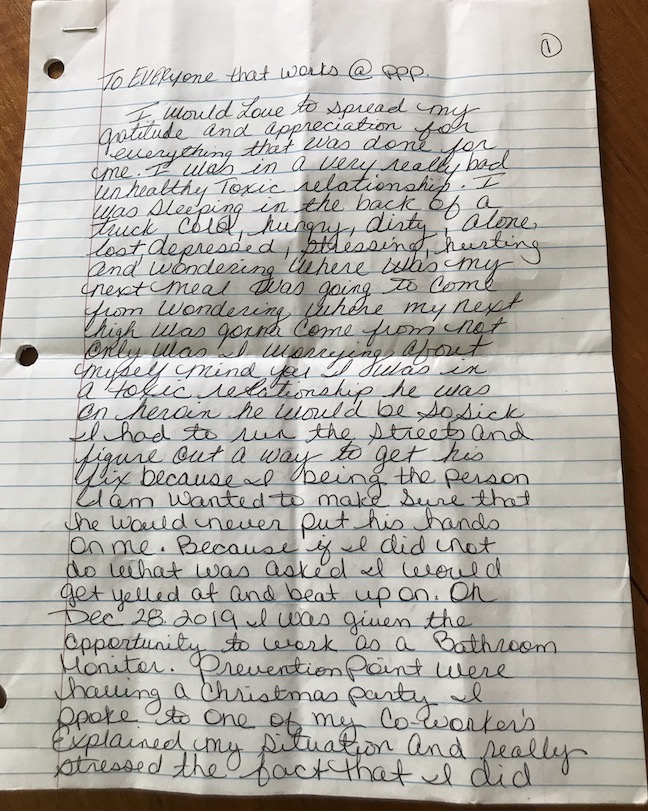 ①
To EVERyone that works @ ppp.
I would Love to spread my
gratitude and appreciation for
everything that was done for
me. I was in a very really bad
unhealthy Toxic relationship. I
was sleeping in the back of a
truck cold, hungry, dirty, alone,
lost, depressed, stressing, hurting
and wondering where was my
next meal was going to come
from wondering where my next
high was gonna come from not
only was I worrying about
myself mind you I was in
a toxic relationship he was
on heroin he would be so sick
I had to run the streets and
figure out a way to get his
fix because I being the person
I am wanted to make sure that
he would never put his hands
on me. Because if I did not
do what was asked I would
get yelled at and beat up on. On
Dec 28. 2019 I was given the
opportunity to work as a Bathroom
Monitor. Prevention Point were
having a Christmas party I
spoke to one of my Co-worker's
Explained my situation and really
stressed the fact that I did